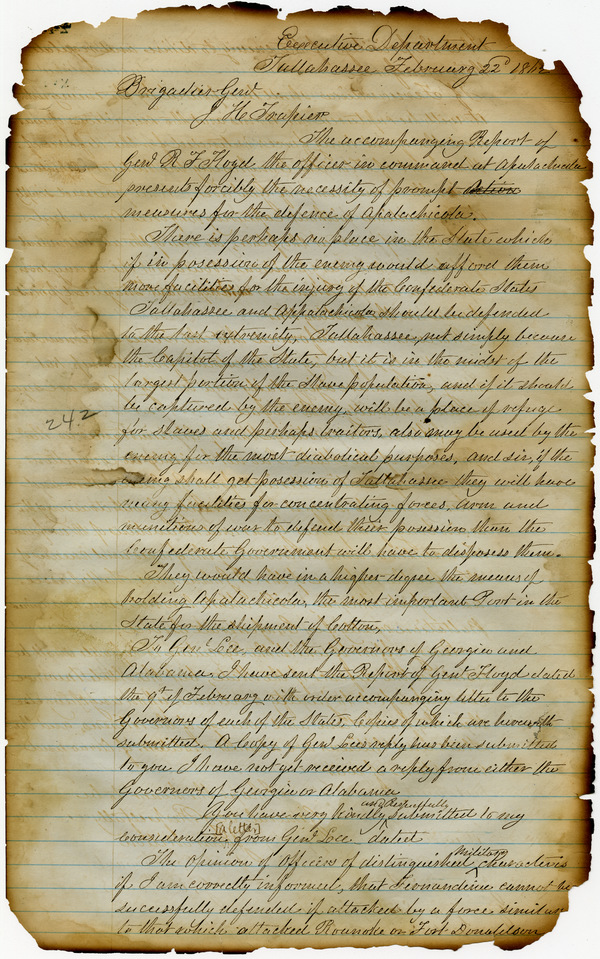 Executive Department
Tallahassee February 22d 186
Brigadier Genl
J H Trapier
The accompanying Report of
Genl R F Floyd the officer in command at Apalachicola
presents forcibly the necessity of prompt action
measures for the defence of Apalachicola.
There is perhaps no place in the State which
if in posession of the enemy would afford them
more facilities for the injury of the Confederate States
Tallahassee and Appalachicola should be defended
to the last extremity. Tallahassee, not simply because
the Capitol of the State, but it is in the midst of the
largest portion of the Slave population, and if it should
be captured by the enemy, will be a place of refuge
for slaves and perhaps traitors, also may be used by the
enemy for the most diabolical purposes, and sir, if the
enemy shall get posession of Tallahassee they will have
many facilities for concentrating forces, arm and
munitions of war to defend their posession than the
Confederate Government will have to disposess them.
They would have in a higher degree the means of
holding Apalachicola, the most important Port in the
State for the shipment of Cotton,
To Genl Lee, and the Governors of Georgia and
Alabama, I have sent the Report of Genl Floyd dated
the 9th of February with order accompanying letter to the
Governors of each of the States, Copies of which are herewith
submitted. A Copy of Genl Lees reply has been submitted
to you I have not yet received a reply from either the
Governors of Georgia or Alabama
You have very kindly and Respectfully submitted to my
consideration (a letter) from Genl Lee dated
The opinion of officers of distinguished military characters
if I am correctly informed, that Fernandina cannot be
successfully defended if attacked by a force similar
to that which attacked Roanoke or Fort Donaldson
24.2